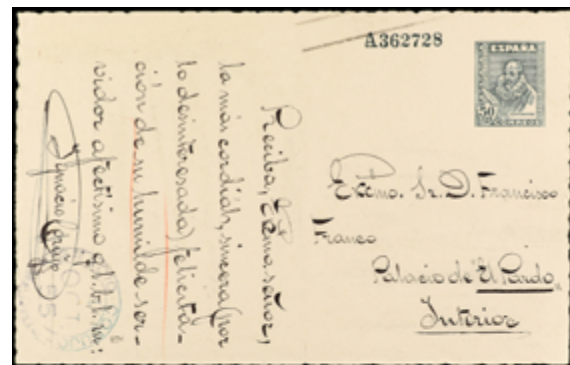 A362728
ESPAÑA
50
CORREOS
Excmo. Sr. D. Francisco
Franco
Palacio de El Pardo
Interior
Reciba, Excmo. señor,
la más cordial, sincera (por
lo desinteresada) felicita-
ción de su humilde ser-
vidor afectísimo q.b.s.m:
Ignacio
OCT.